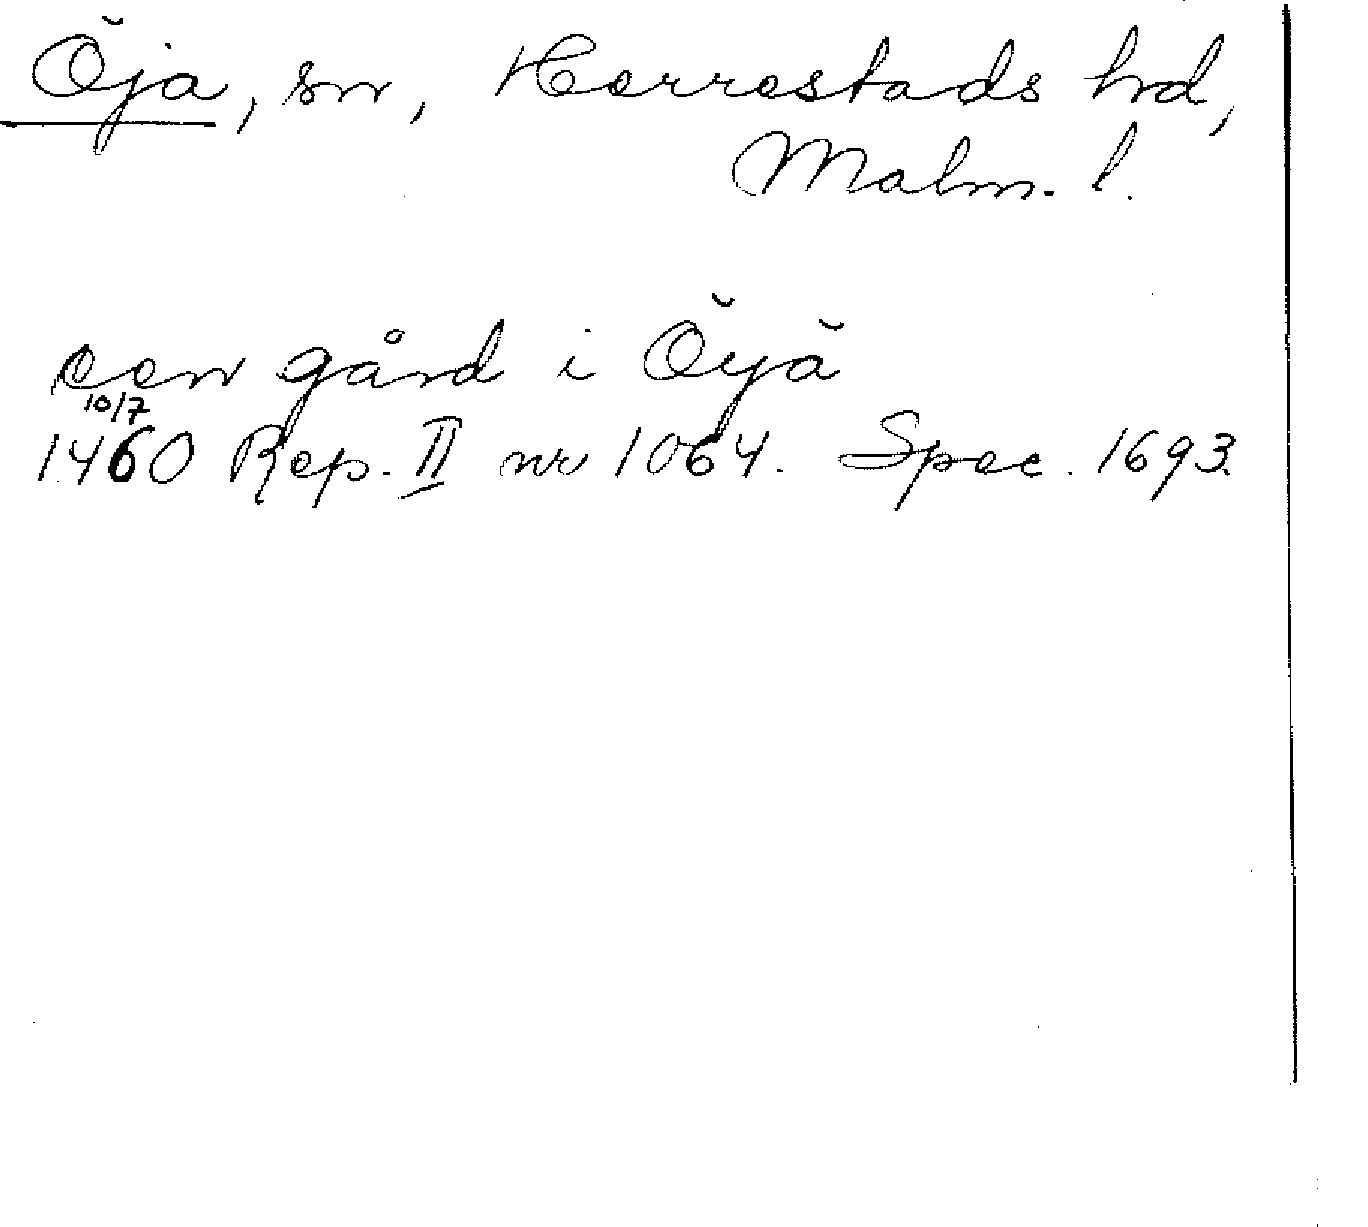 Öja, sn, Herrestads hd,
Malm. l.
een gård i Öyä
10/7
1460 Rep. II nr 1064. Spec. 1693.